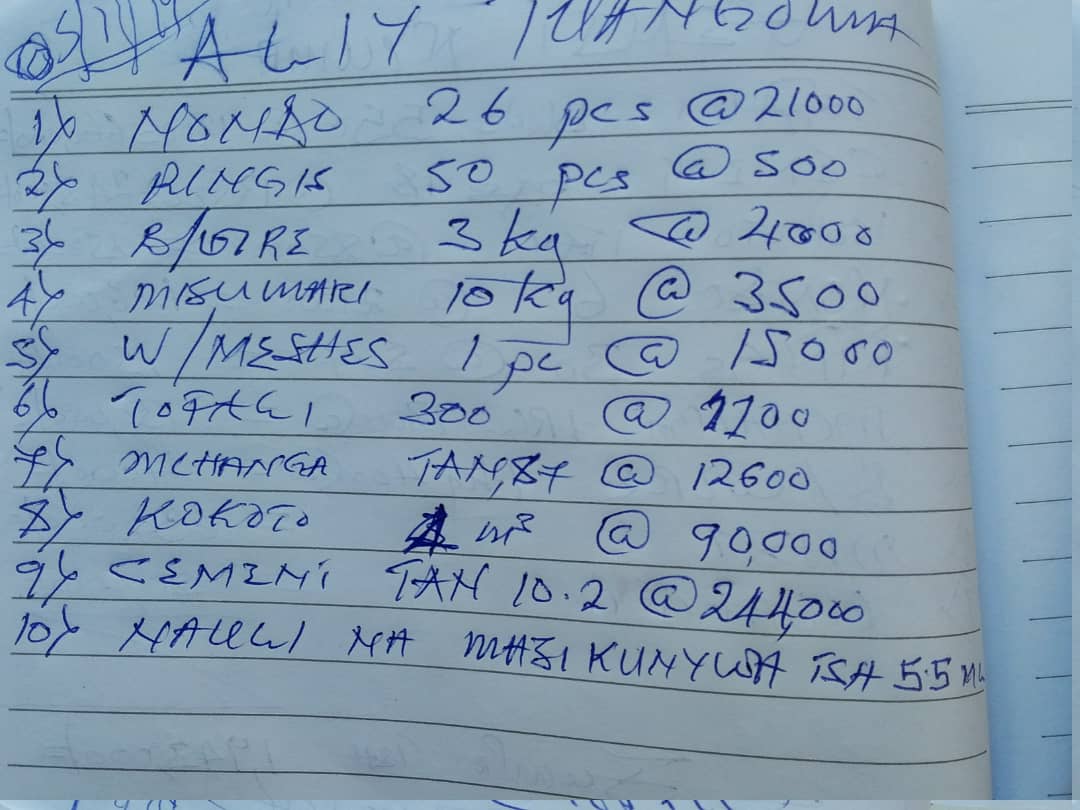 ALIY TUANGOMA
1) NONDO 26 pcs @ 21000
2) RINGIS 50 pcs @ 500
3) B/WIRE 3 kg @ 4000
4) MISUMARI 10 kg @ 3500
5) W/MESHES 1 pc @ 15000
6) TOFALI 300 @ 1100
7) MCHANGA TAN, 87 @ 12600
8) KOKOTO 1 m³ @ 90,000
9) CEMENT TAN 10.2 @ 244,000
10) NAULI NA MAJI KUNYWA TSH 5.5